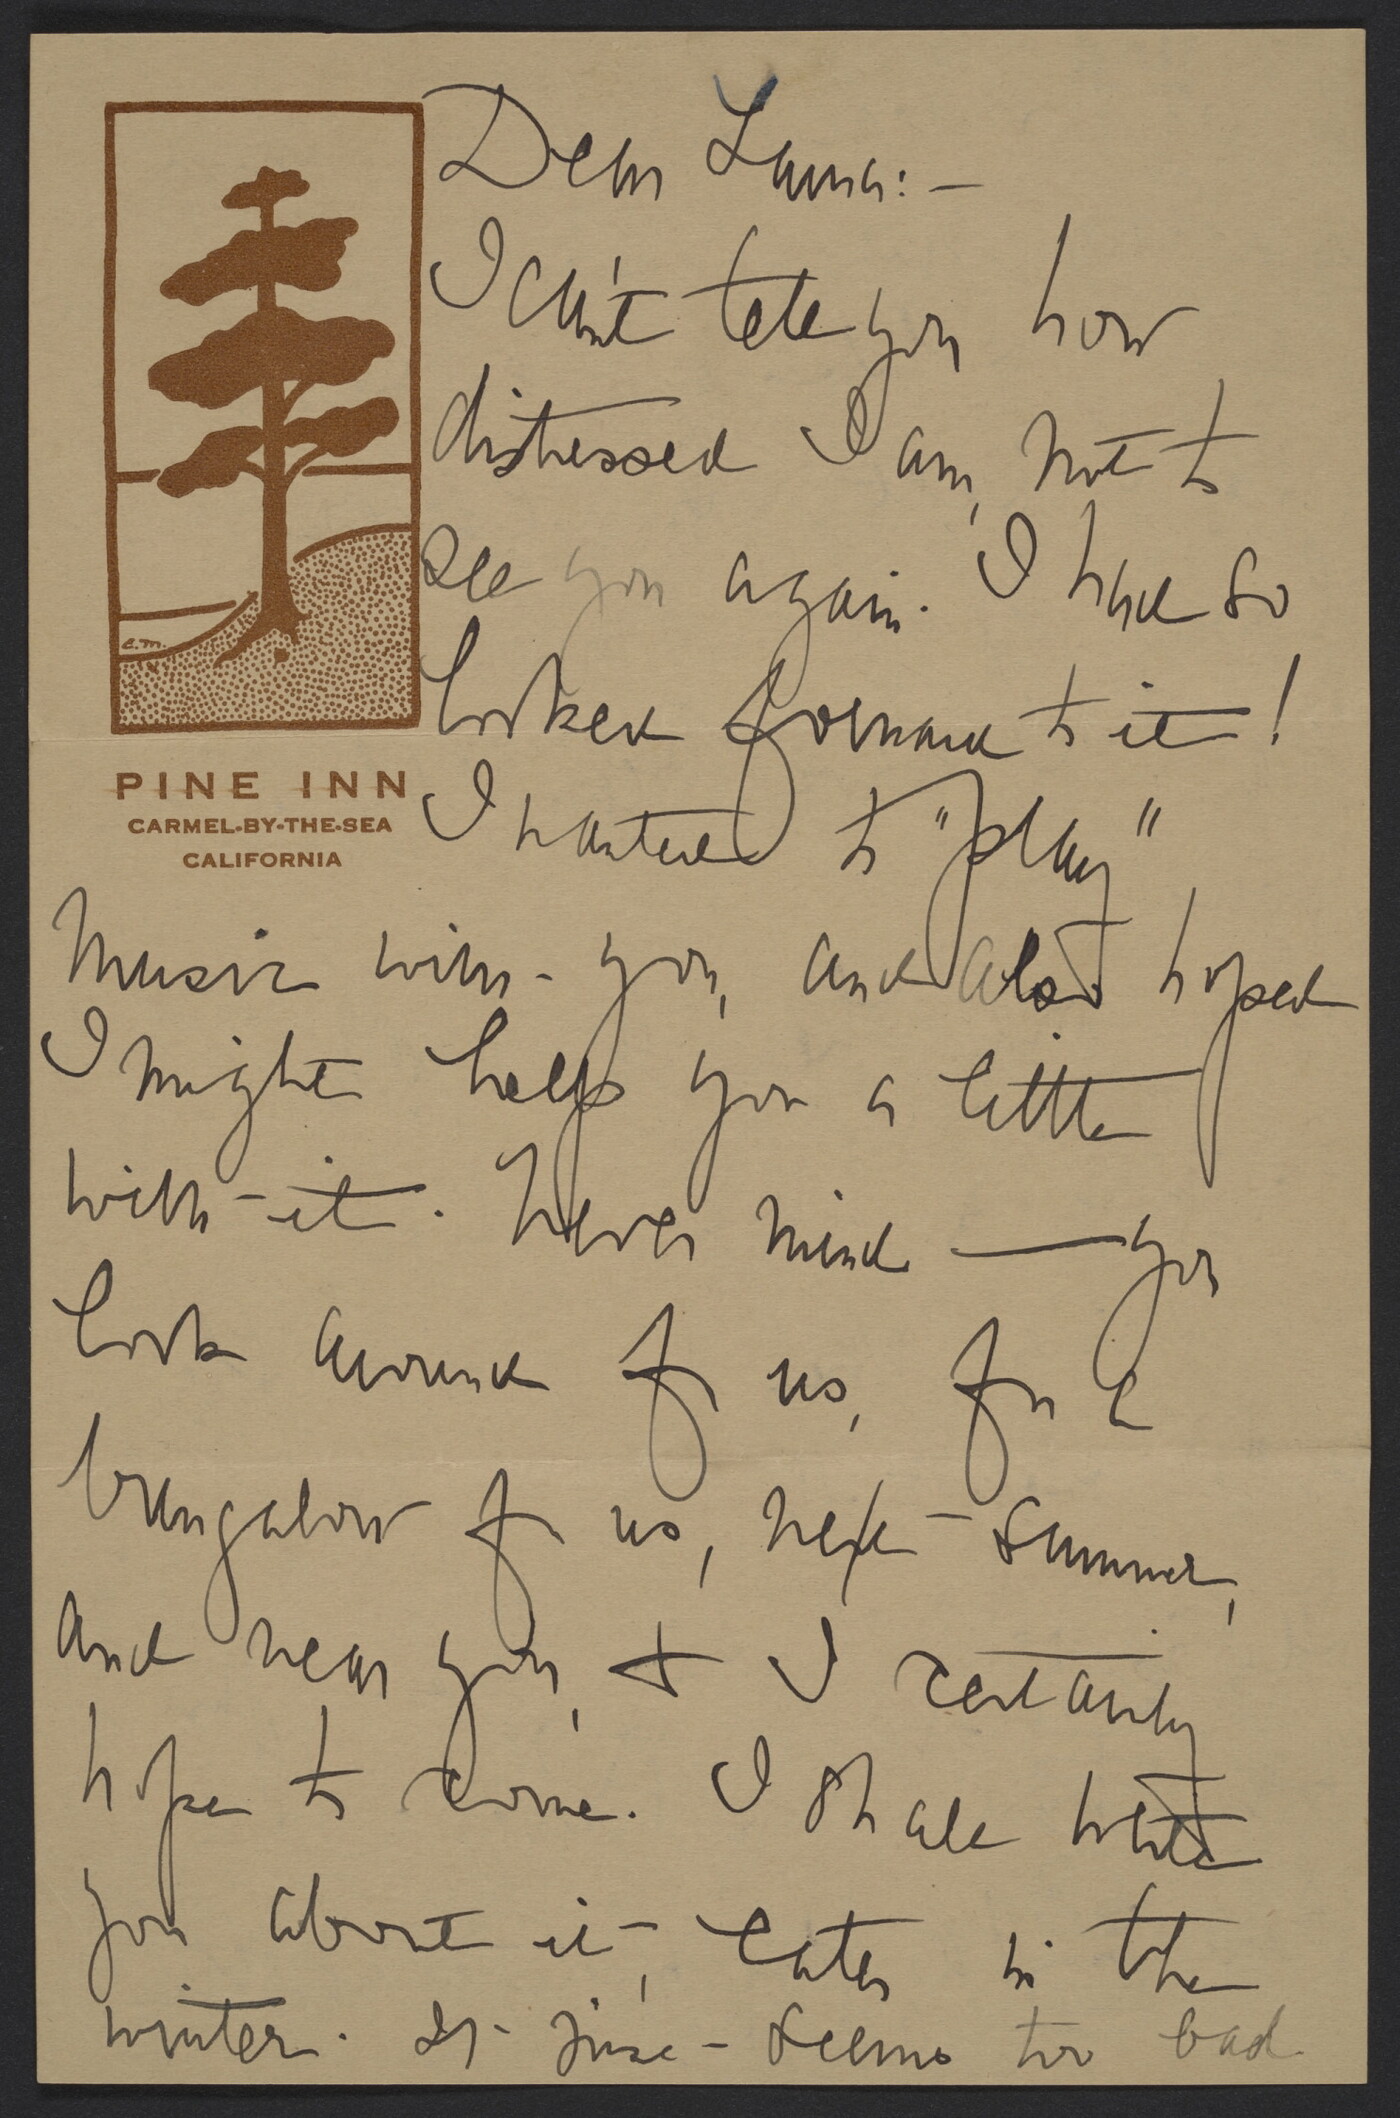 Dear Laura:—
I can't tell you how
distressed I am, not to
see you again. I had so
looked forward to it!
I wanted to "play"
e.m.
PINE INN
CARMEL-BY-THE-SEA
CALIFORNIA
music with you, and also hoped
I might help you a little
with it. Never mind — you
look around for us, for a
bungalow for us, next summer,
and near you, & I certainly
hope to come. I shall write
you about it, later in the
winter. It just seems too bad